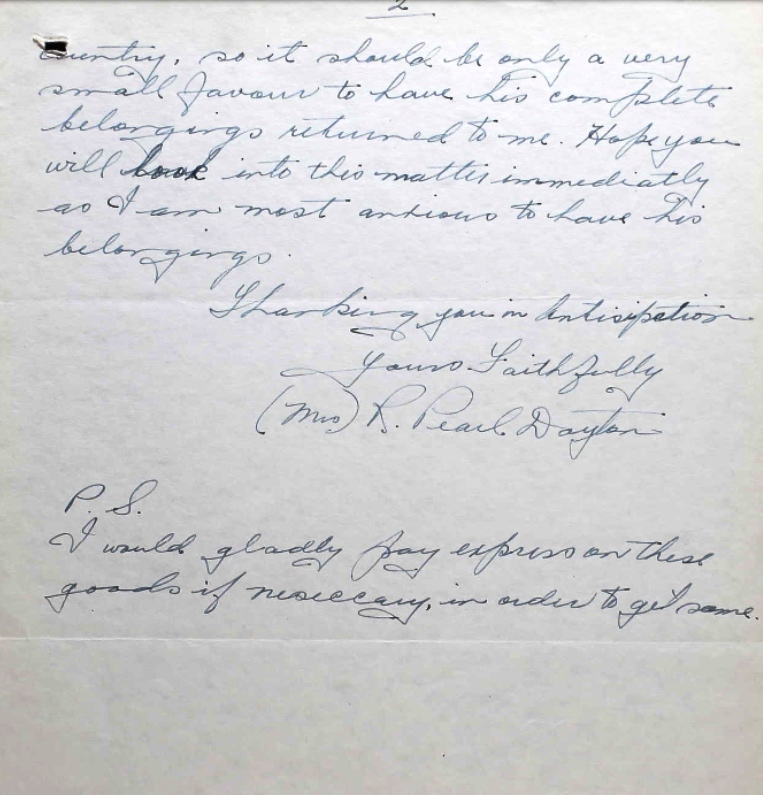 2
country, so it should be only a very
small favour to have his complete
belongings returned to me. Hope you
will look into this matter immediatly
as I am most anxious to have his
belongings.
Thanking you in Antisipation
Yours Faithfully
(Mrs) R. Pearl Dayton
P. S.
I would gladly pay express on these
goods if neseccary, in order to get same.